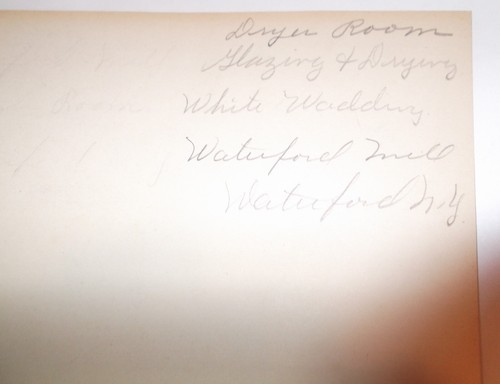 Dryer Room
Glazing & Drying
White Wadding
Waterford Mill
Waterford N.Y.